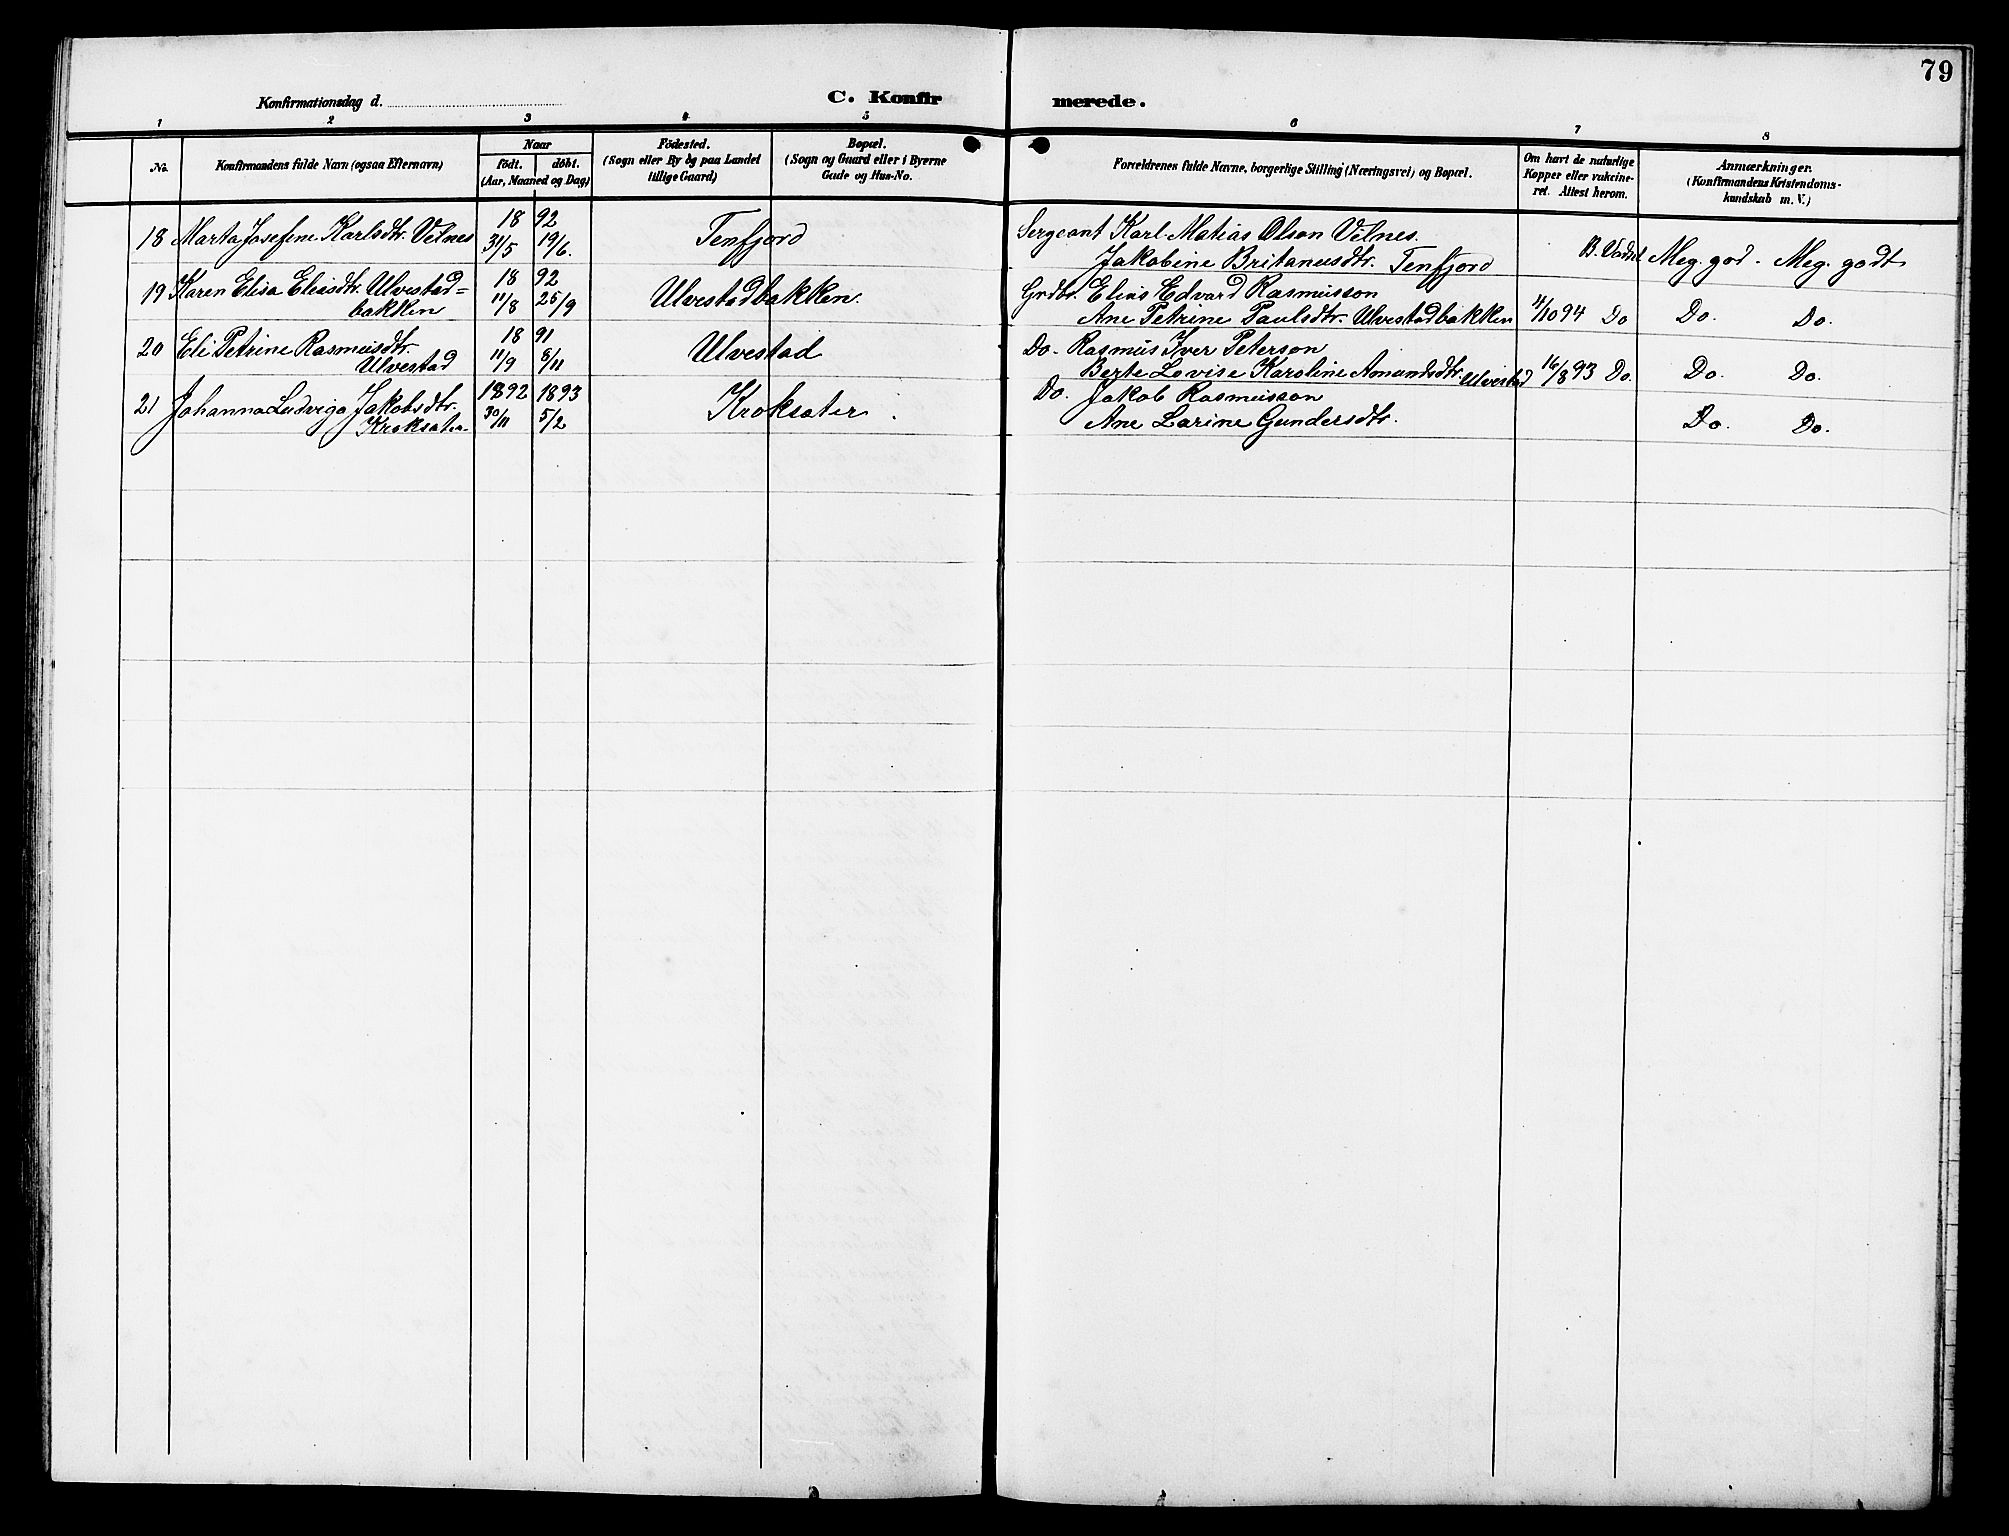 79
Konfirmationsdag d.
C. Konfirmerede.
1 2 3 4 5 6 7 8
No.
Konfirmandens fulde Navn (ogsaa Efternavn)
Naar
födt. döbt.
(Aar, Maaned og Dag)
Födested.
(Sogn eller By og paa Landet
tillige Gaard)
Bopæl.
(Sogn og Gaard eller i Byerne
Gade og Hus-No.
Forældrenes fulde Navne, borgerlige Stilling (Næringsvei) og Bopæl.
Om havt de naturlige
Kopper eller vakcine-
ret. Attest herom.
Anmærkninger.
(Konfirmandens Kristendoms-
kundskab m. V.)
18 Marta Josefine Karlsdtr. Velnes 18 92 Sergeant Karl Matias Olson Velnes.
31/5 19/6. Tenfjord Jakobine Britanusdtr. Tenfjord Meg. god. Meg. godt
19 Karen Elisa Eliasdtr. Ulvestad= 18 92 Grdbr. Elias Edvard Rasmusson
bakken 11/8 25/9 Ulvestadbakken. Ane Petrine Paulsdtr. Ulvestadbakken 11/10 94 Do Do. Do.
20 Eli Petrine Rasmusdtr. 18 91 Do. Rasmus Iver Peterson
Ulvestad 11/9 8/11 Ulvestad Berte Lovise Karoline Amundsdtr. Ulvestad 16/8 93 Do. Do. Do.
21 Johanna Ludviga Jakobsdtr. 1892 1893 Do. Jakob Rasmusson
Kroksæter 30/11 5/2 Kroksæter. Ane Larine Gundersdtr. Do. Do.